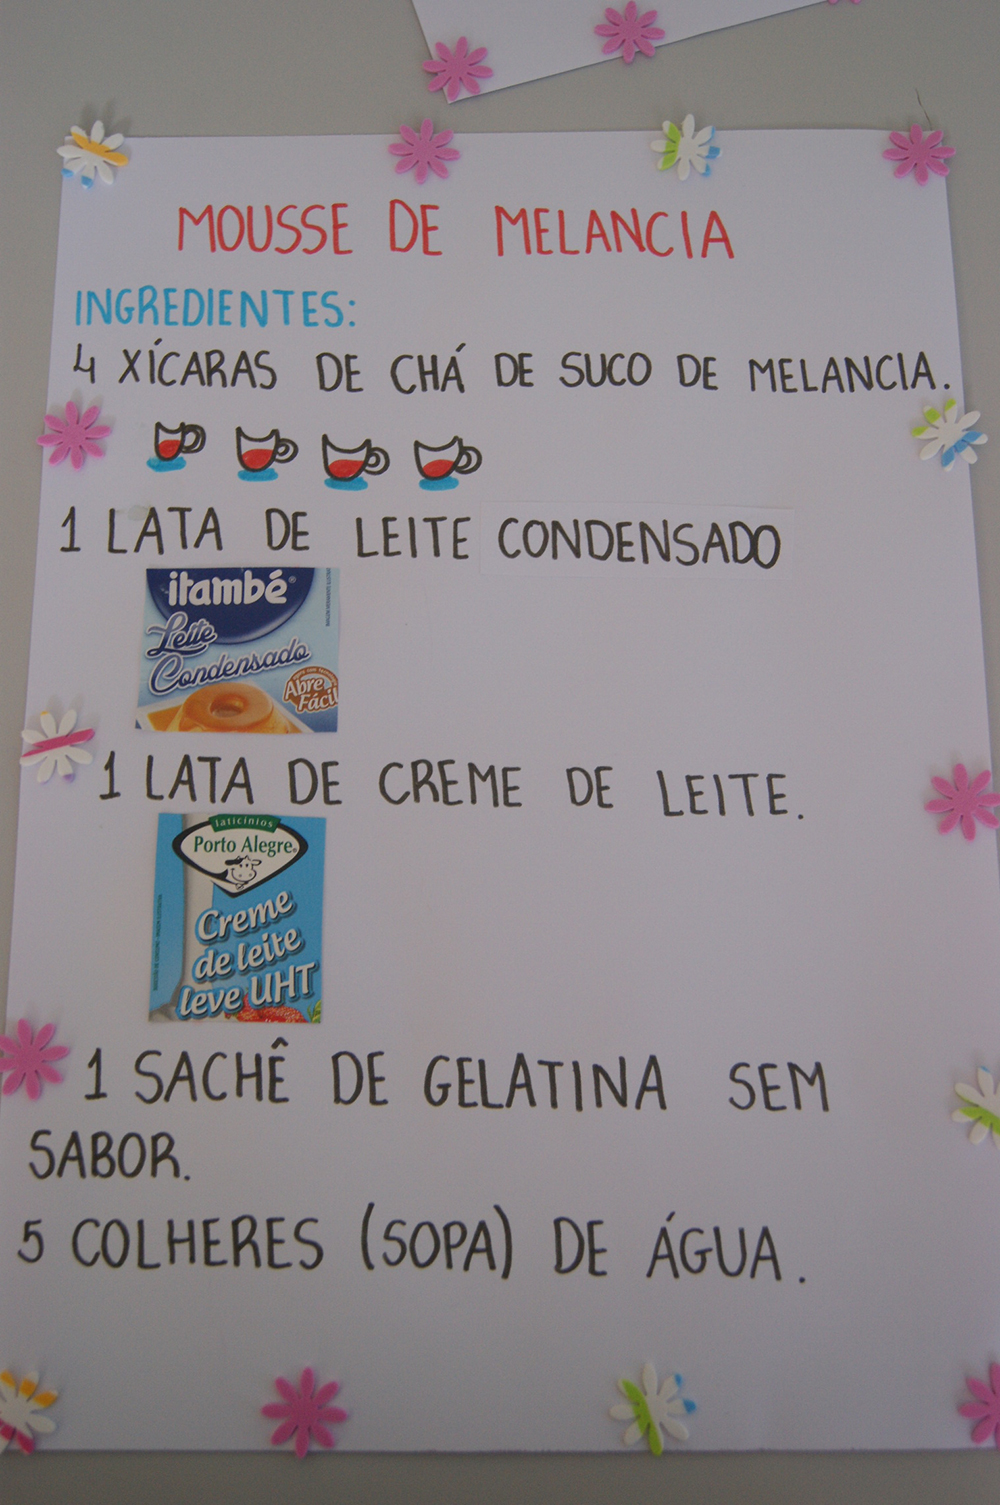 MOUSSE DE MELANCIA
INGREDIENTES:
4 XÍCARAS DE CHÁ DE SUCO DE MELANCIA.
1 LATA DE LEITE CONDENSADO
itambé®
Leite
Condensado
Abre
Fácil
1 LATA DE CREME DE LEITE.
laticínios
Porto Alegre®
Creme
de leite
leve UHT
1 SACHÊ DE GELATINA SEM
SABOR.
5 COLHERES (SOPA) DE ÁGUA.